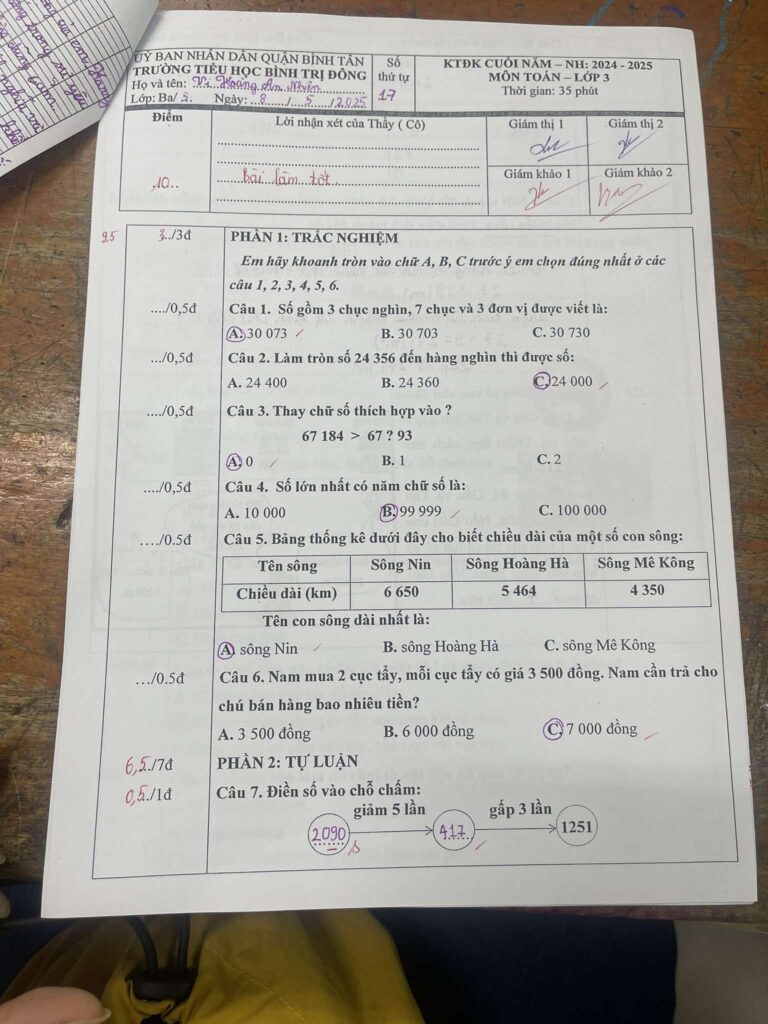 ỦY BAN NHÂN DÂN QUẬN BÌNH TÂN
TRƯỜNG TIỂU HỌC BÌNH TRỊ ĐÔNG
Họ và tên: Vi Hoàng An Nhiên
Lớp: Ba/ 5. Ngày: 8 / 5 / 2025
Số
thứ tự
17
KTĐK CUỐI NĂM – NH: 2024 - 2025
MÔN TOÁN – LỚP 3
Thời gian: 35 phút
Điểm
10
Lời nhận xét của Thầy ( Cô)
Bài làm tốt.
Giám thị 1
Giám thị 2
Giám khảo 1
Giám khảo 2
9.5
3../3đ
PHẦN 1: TRẮC NGHIỆM
Em hãy khoanh tròn vào chữ A, B, C trước ý em chọn đúng nhất ở các
câu 1, 2, 3, 4, 5, 6.
..../0,5đ Câu 1. Số gồm 3 chục nghìn, 7 chục và 3 đơn vị được viết là:
A. 30 073 B. 30 703 C. 30 730
.../0,5đ Câu 2. Làm tròn số 24 356 đến hàng nghìn thì được số:
A. 24 400 B. 24 360 C. 24 000
..../0,5đ Câu 3. Thay chữ số thích hợp vào ?
67 184 > 67 ? 93
A. 0 B. 1 C. 2
..../0,5đ Câu 4. Số lớn nhất có năm chữ số là:
A. 10 000 B. 99 999 C. 100 000
..../0.5đ Câu 5. Bảng thống kê dưới đây cho biết chiều dài của một số con sông:
Tên sông Sông Nin Sông Hoàng Hà Sông Mê Kông
Chiều dài (km) 6 650 5 464 4 350
Tên con sông dài nhất là:
A. sông Nin B. sông Hoàng Hà C. sông Mê Kông
.../0.5đ Câu 6. Nam mua 2 cục tẩy, mỗi cục tẩy có giá 3 500 đồng. Nam cần trả cho
chú bán hàng bao nhiêu tiền?
A. 3 500 đồng B. 6 000 đồng C. 7 000 đồng
6,5./7đ PHẦN 2: TỰ LUẬN
0,5./1đ Câu 7. Điền số vào chỗ chấm:
giảm 5 lần gấp 3 lần
2090 417 1251
s